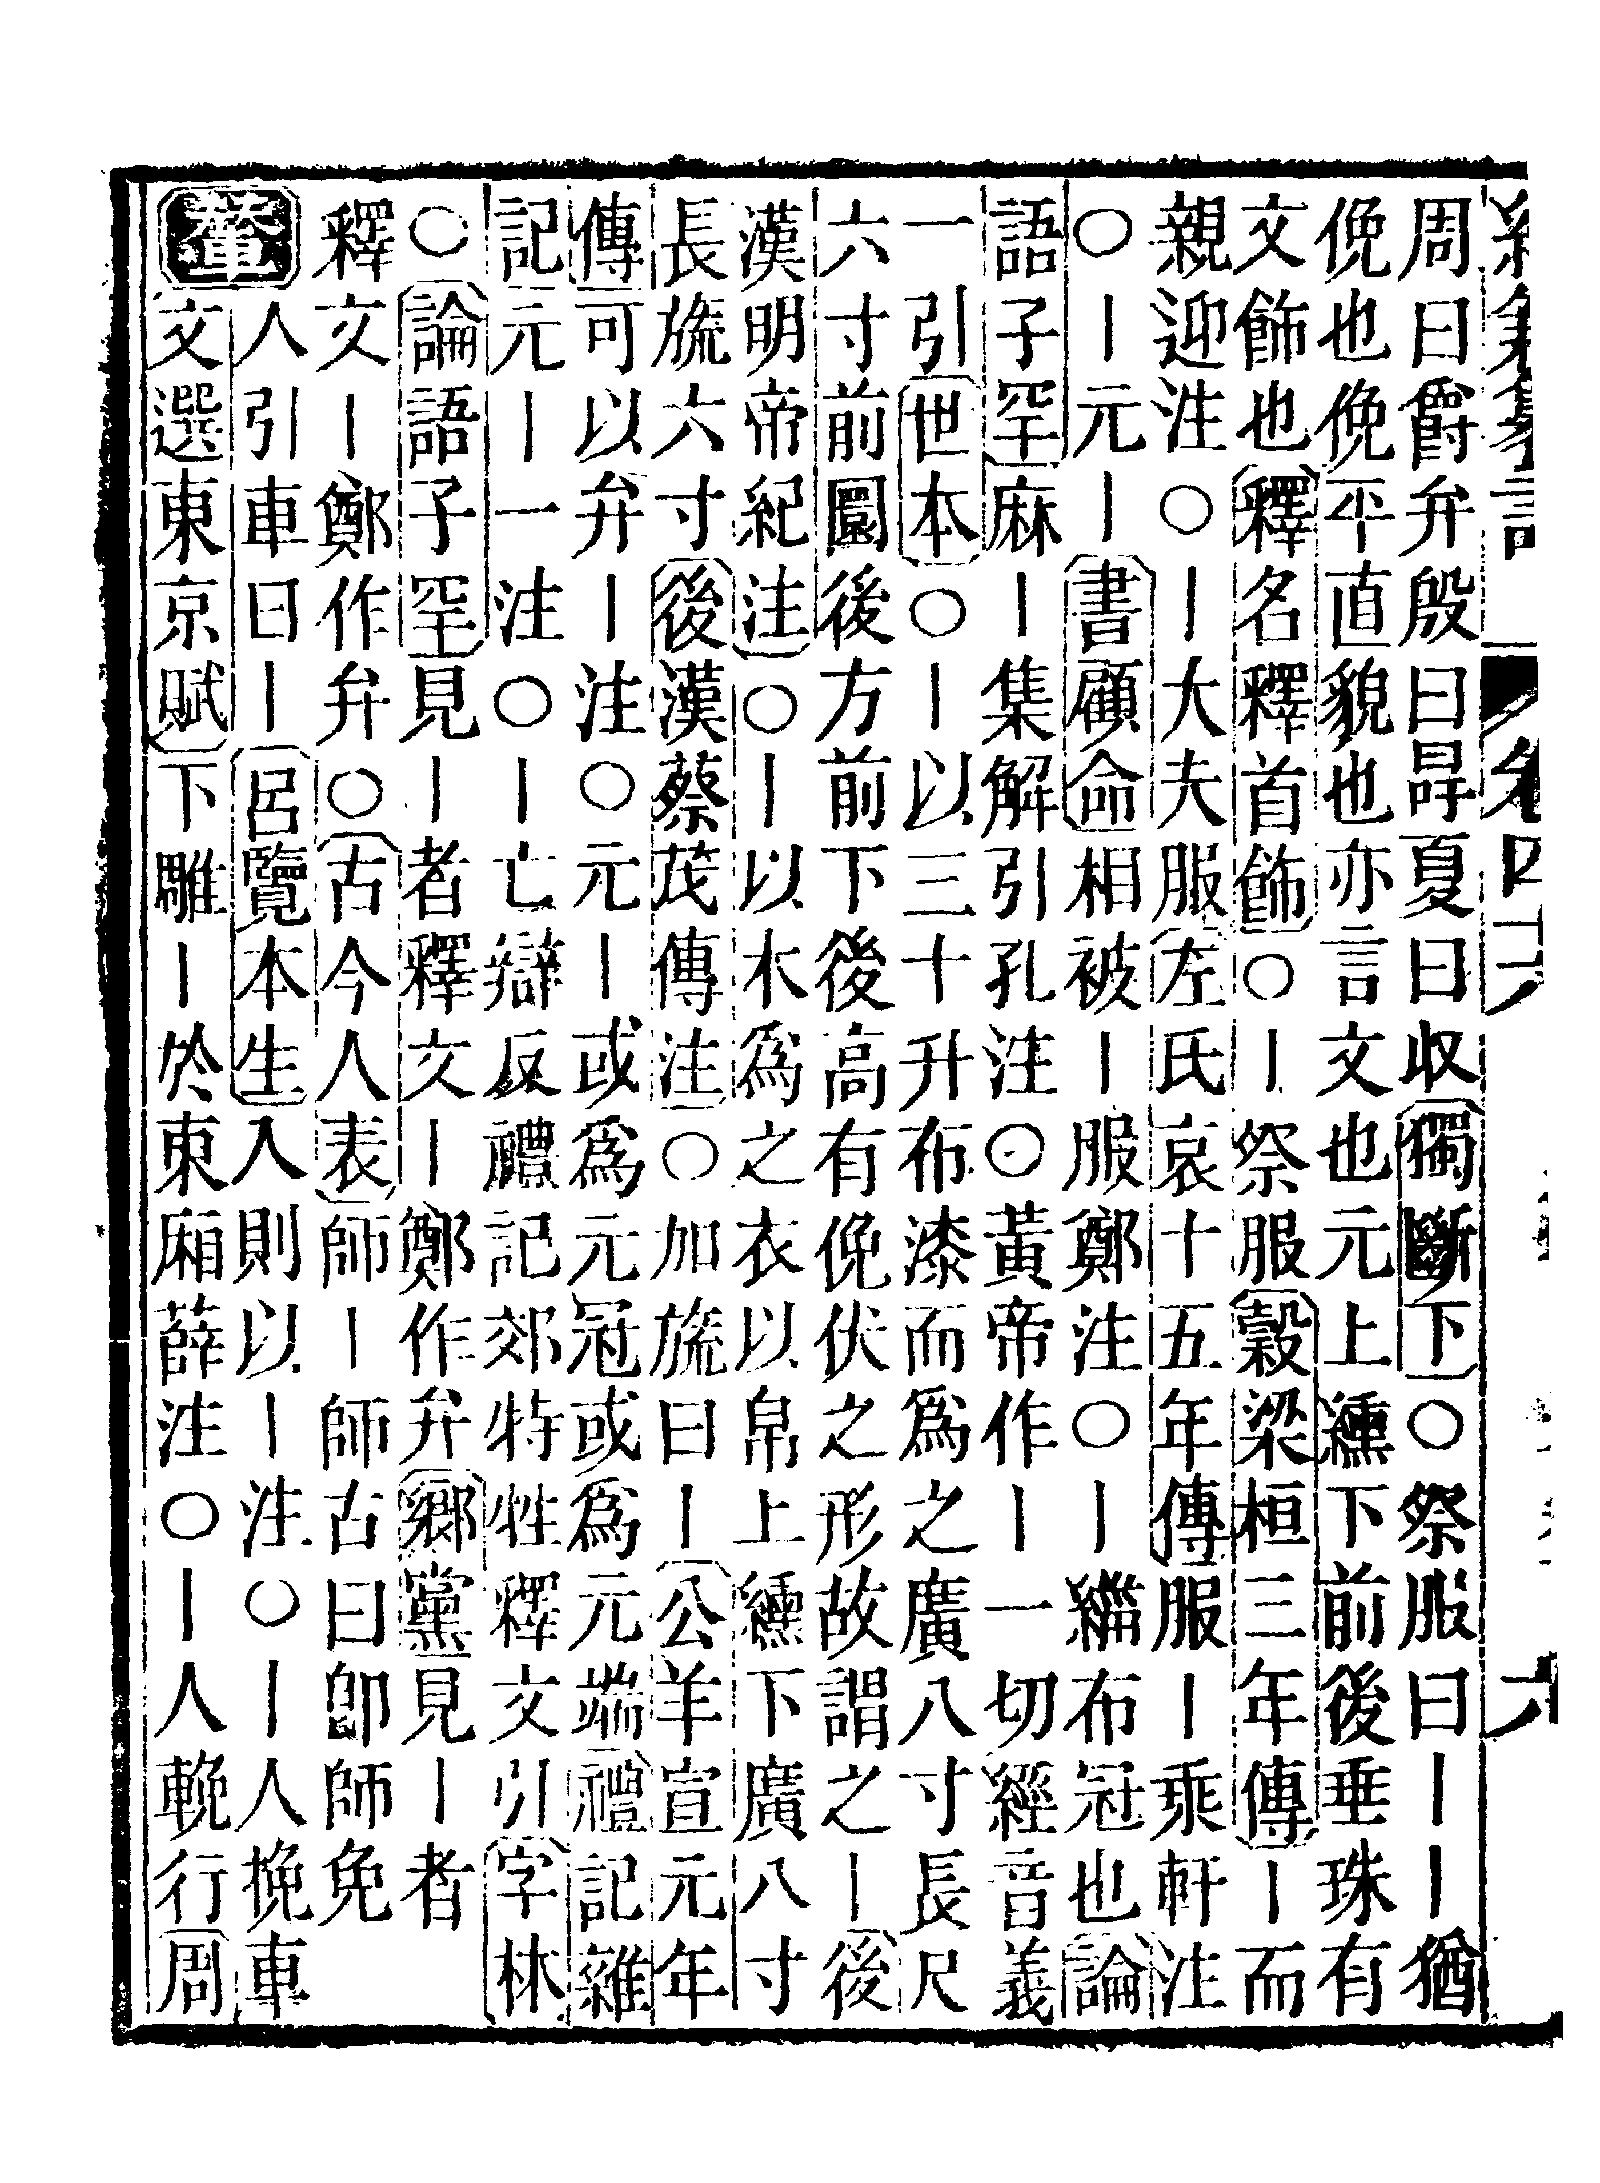 籑詁 卷四十六 六
周曰爵弁殷曰冔夏曰収獨斷下○祭服曰丨丨猶
俛也俛平直貌也亦言文也元上纁下前後垂珠有
文飾也釋名釋首飾○丨祭服穀梁桓三年傳丨而
親迎注○丨大夫服左氏哀十五年傳服丨乘軒注
○丨元丨書顧命相被丨服鄭注○丨緇布冠也論
語子罕麻丨集解引孔注○黃帝作丨一切經音義
一引世本○丨以三十升布漆而爲之廣八寸長尺
六寸前圜後方前下後高有俛伏之形故謂之丨後
漢明帝紀注○丨以木爲之衣以帛上纁下廣八寸
長旒六寸後漢蔡茂傳注○加旒曰丨公羊宣元年
傳可以弁丨注○元丨或爲元冠或爲元端禮記雜
記元丨一注○丨亡辯反禮記郊特牲釋文引字林
○論語子罕見丨者釋文丨鄭作弁鄉黨見丨者
釋文丨鄭作弁○古今人表師丨師古曰卽師免
輦
人引車曰丨呂覽本生入則以丨注○丨人挽車
文選東京賦下雕丨於東廂薛注○丨人輓行周